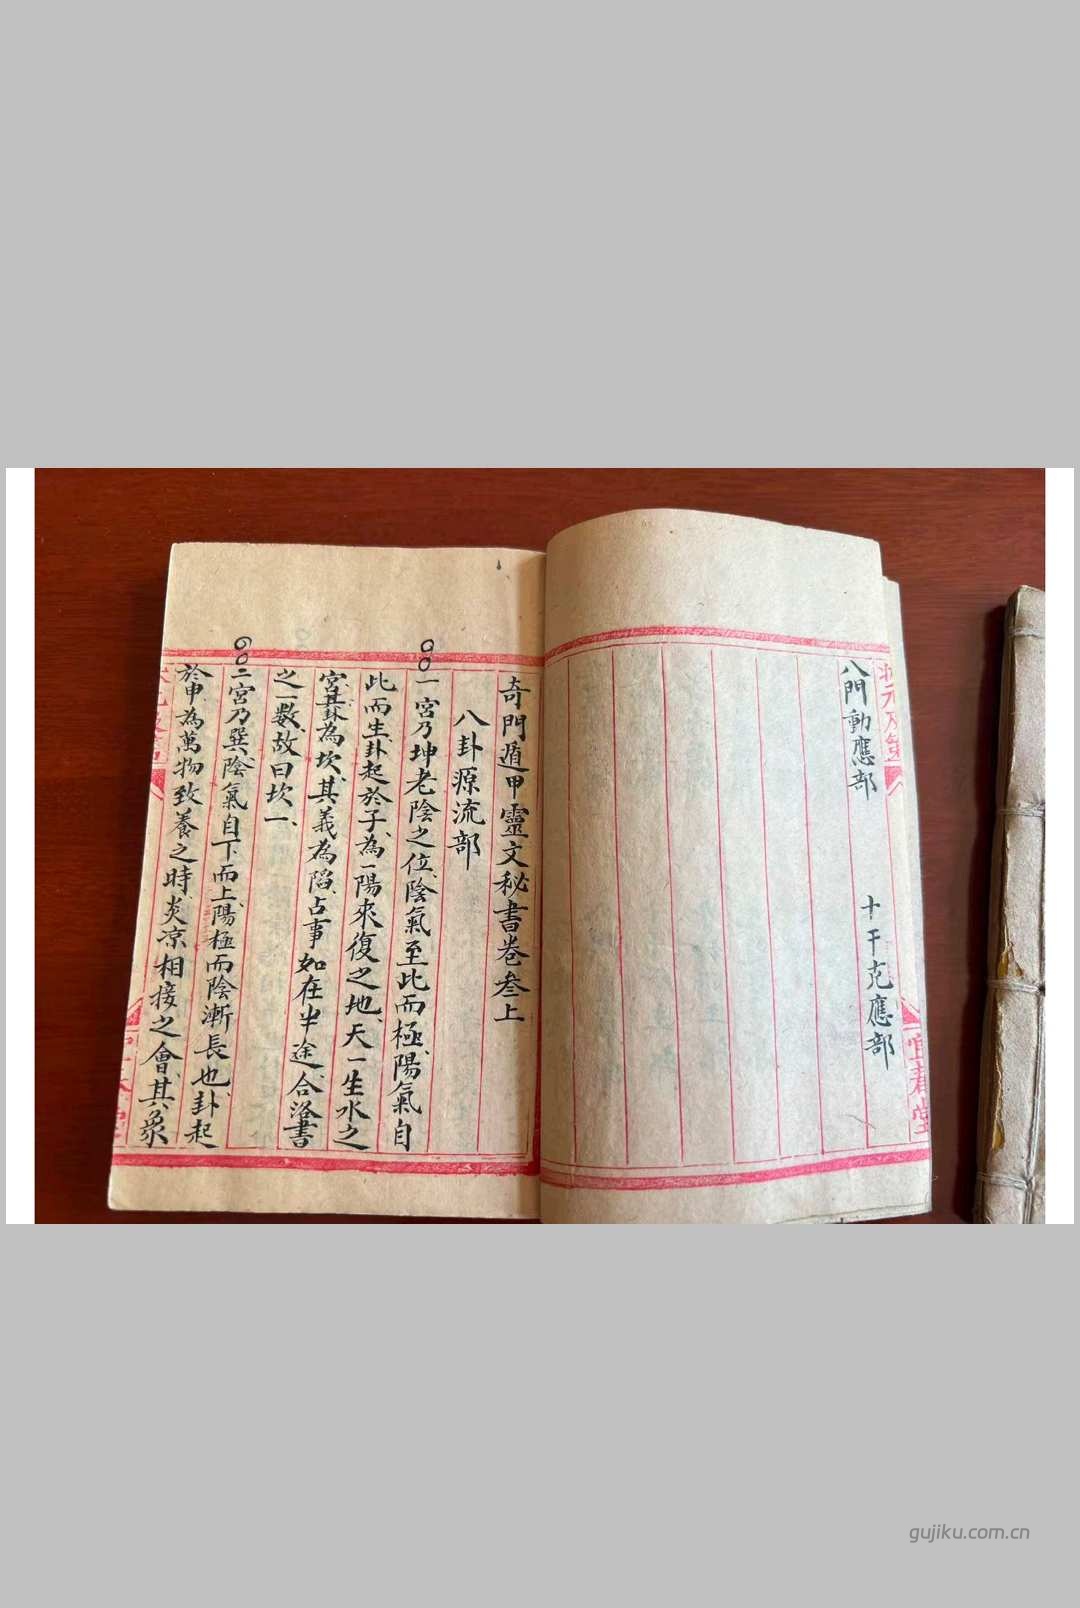 八門動應部 十干克應部
宜春堂
奇門遁甲靈文秘書卷叁上
八卦源流部
一宮乃坤老陰之位陰氣至此而極陽氣自
此而生卦起於子為一陽來復之地天一生水之
宮其卦為坎其義為陷占事如在半途合洛書
之一數故曰坎一
二宮乃巽陰氣自下而上陽極而陰漸長也卦起
於申為萬物致養之時炎凉相接之會其象
gujiku.com.cn